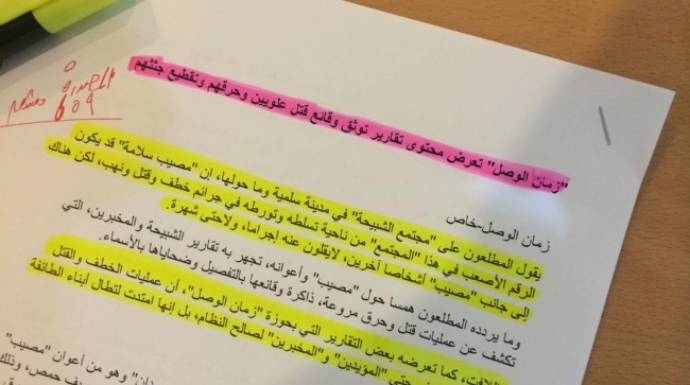 دمشق
609
"زمان الوصل" تعرض محتوى تقارير توثق وقائع قتل علويين وحرقهم وتقطيع جثثهم
زمان الوصل-خاص
يقول المطلعون على "مجتمع الشبيحة" في مدينة سلمية وما حولها، إن "مصيب سلامة" قد يكون
الرقم الأصعب في هذا "المجتمع" من ناحية تسلطه وتورطه في جرائم خطف وقتل ونهب، لكن هناك
إلى جانب "مصيب" أشخاصا آخرين، لايقلون عنه إجراما، ولاحتى شهرة.
وما يردده المطلعون همسا حول "مصيب" وأعوانه، تجهر به تقارير الشبيحة والمخبرين، التي
تكشف عن عمليات قتل وحرق مروعة، ذاكرة وقائعها بالتفصيل وضحاياها بالأسماء.
كما تعرضه بعض التقارير التي بحوزة "زمان الوصل"، أن عمليات الخطف والقتل
حتى "المؤيدين" و"المخبرين" لصالح النظام، بل إنها امتدت لتطال أبناء الطائفة
وهو من أعوان "مصيب"
حمص، وذلك